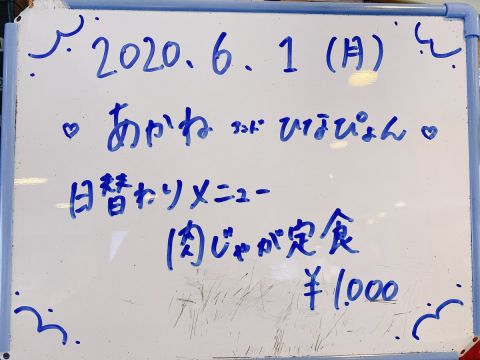 2020.6.1(月)
♡ あかね アンド ひなぴょん ♡
日替わりメニュー
肉じゃが定食
¥1.000